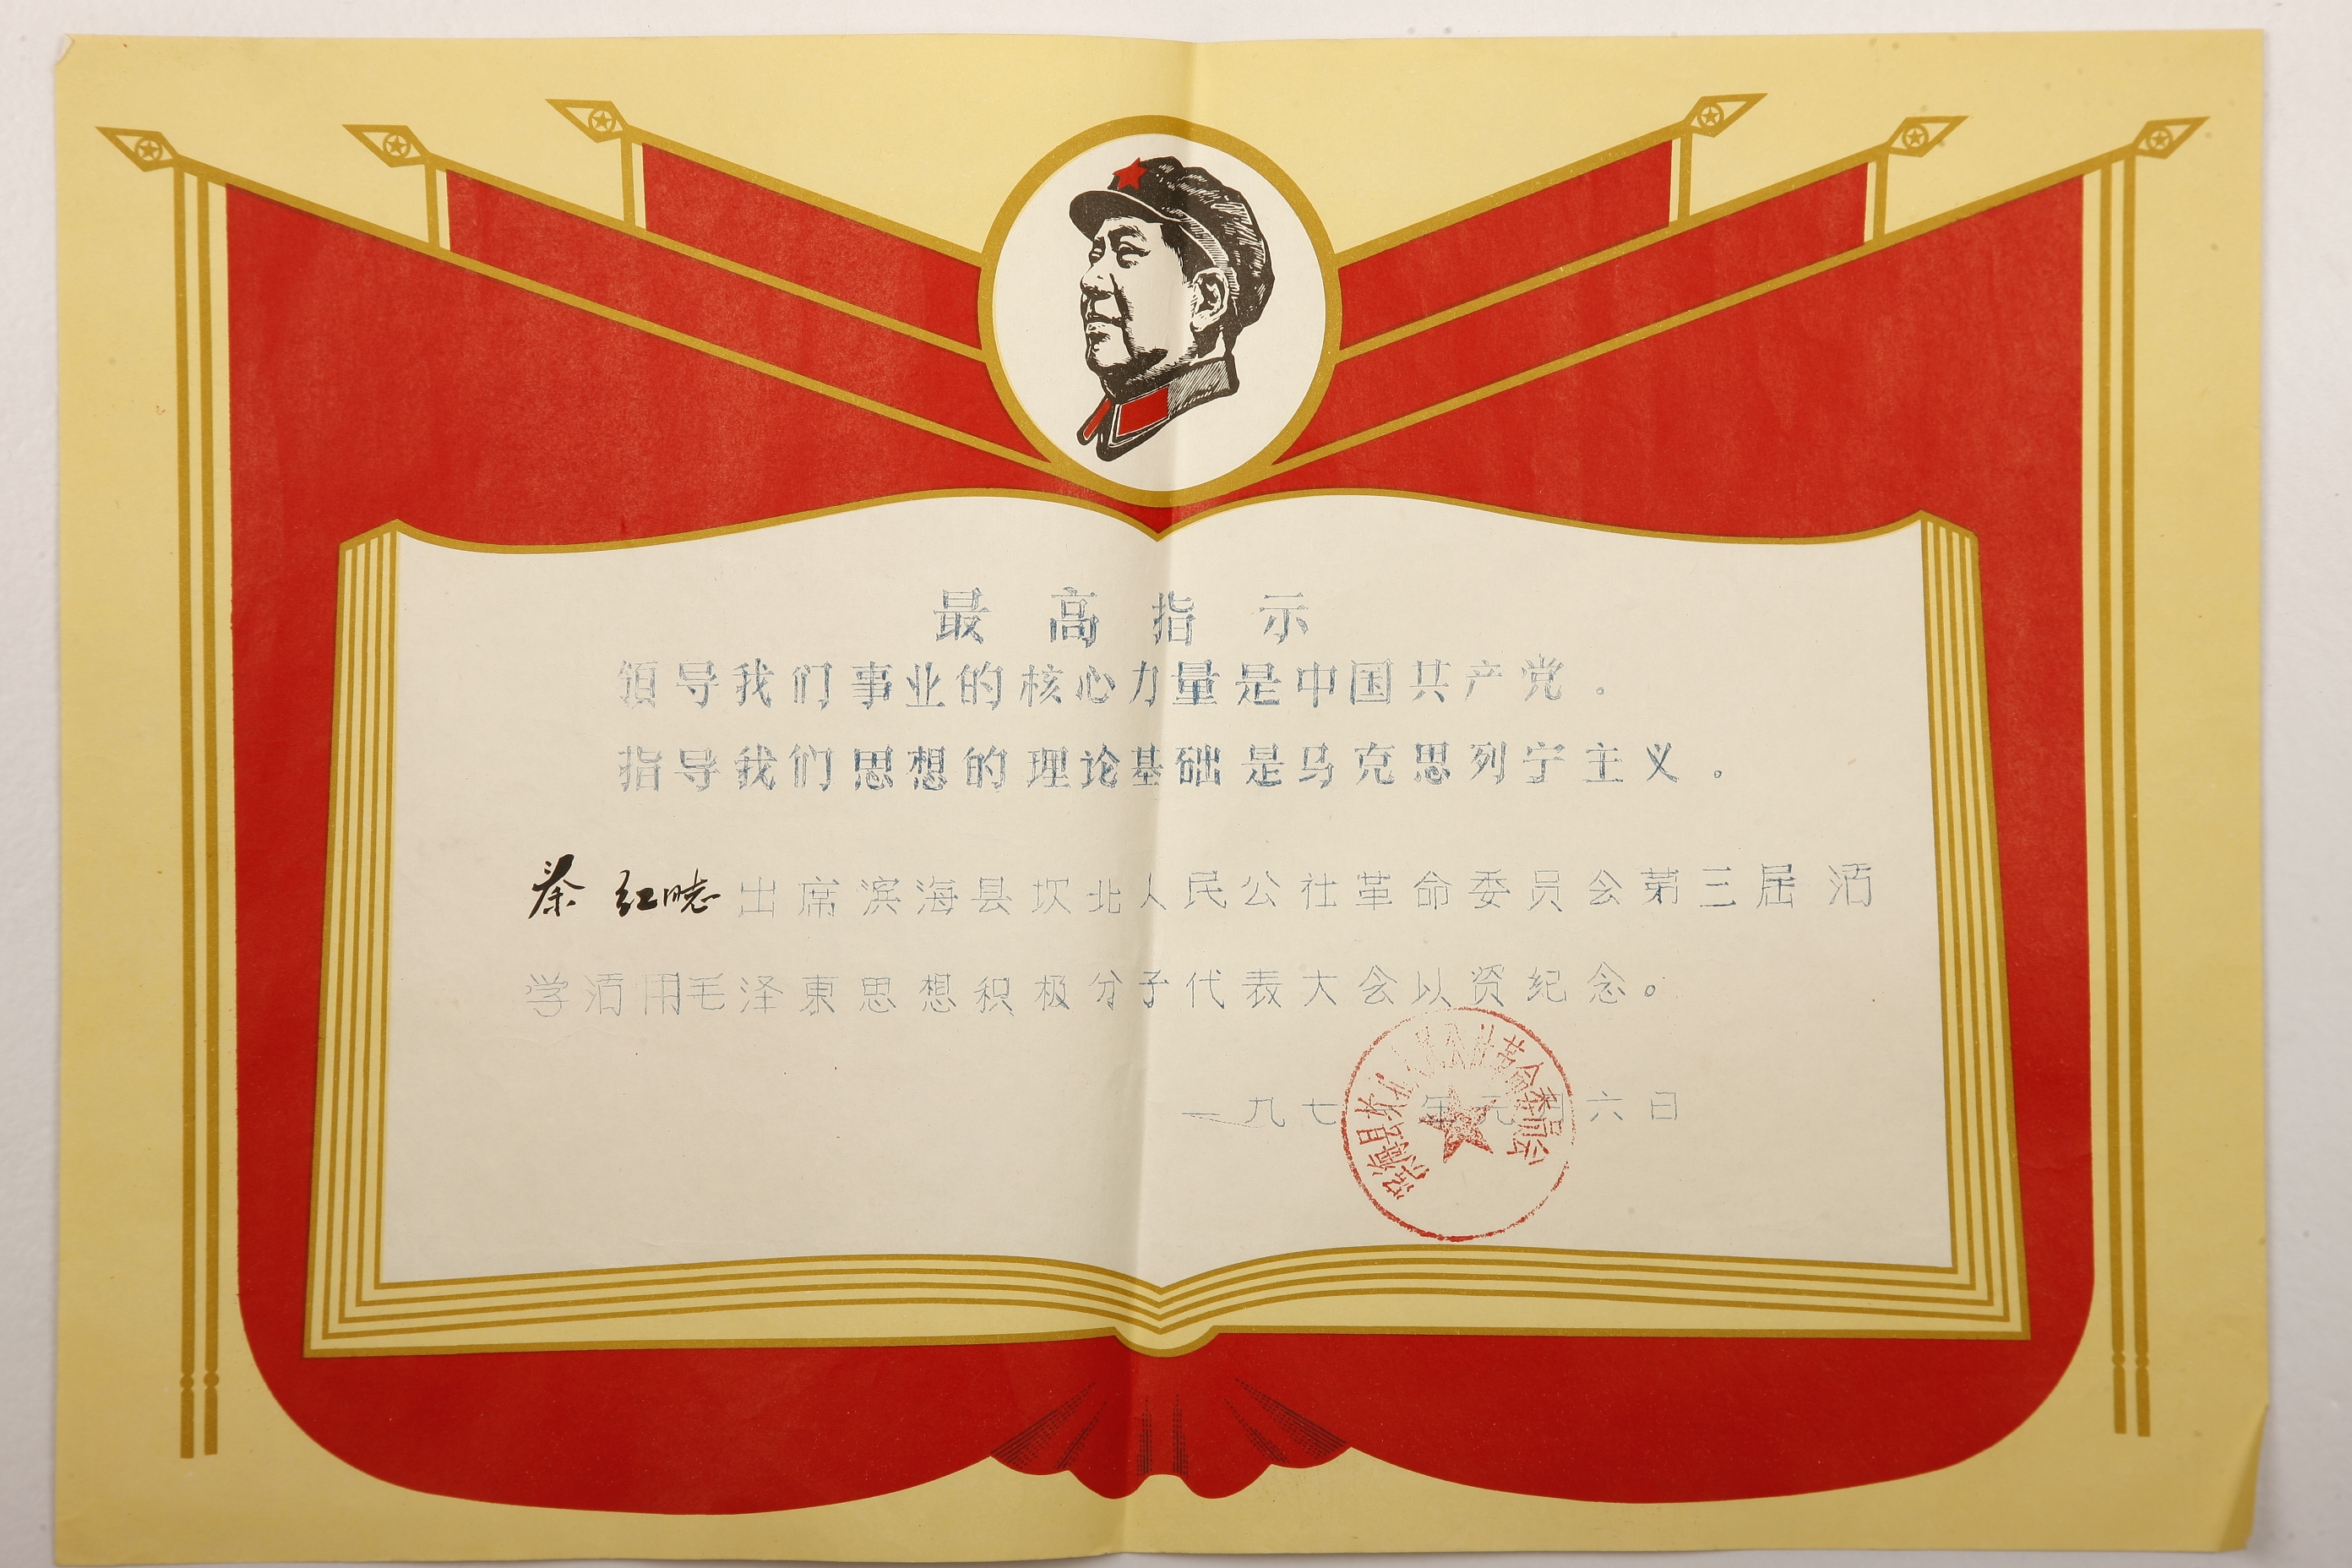 最高指示
领导我们事业的核心力量是中国共产党。
指导我们思想的理论基础是马克思列宁主义。
红 出席滨海县坎北人民公社革命委员会第三届活
学活用毛泽東思想积极分子代表大会以资纪念。
一九七 年元月六日
滨海县坎北人民公社革命委员会